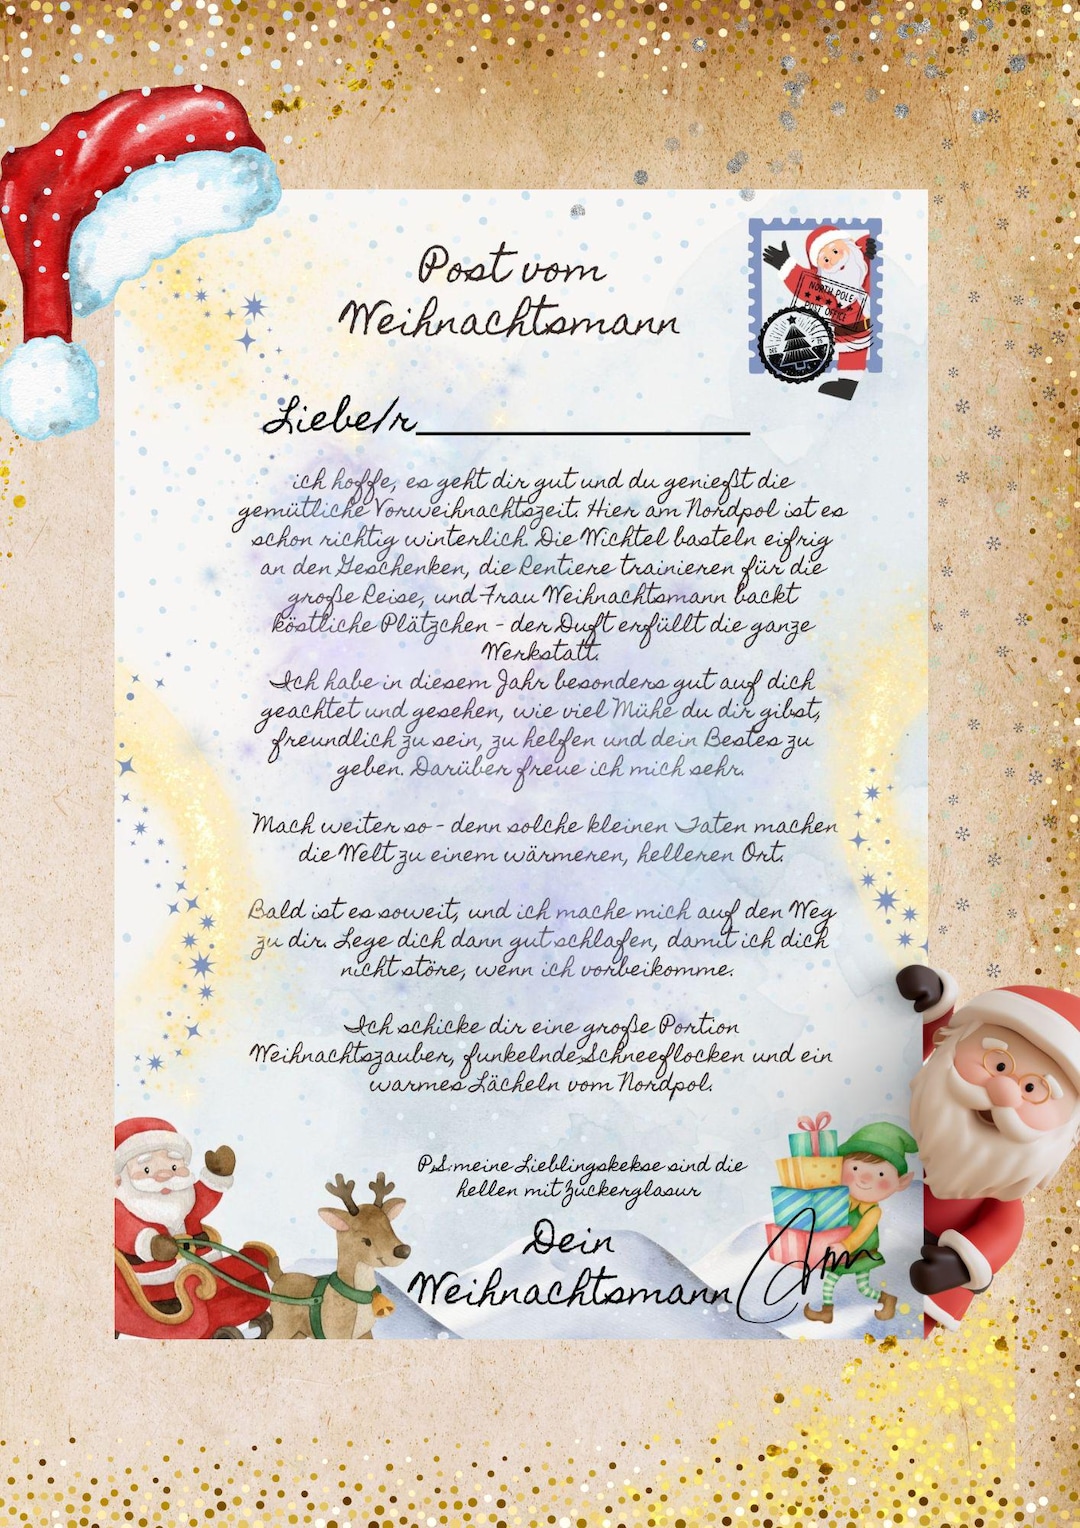 Post vom
Weihnachtsmann
NORTH POLE
POST OFFICE
Liebe/r
ich hoffe, es geht dir gut und du genießt die
gemütliche Vorweihnachtszeit. Hier am Nordpol ist es
schon richtig winterlich. Die Wichtel basteln eifrig
an den Geschenken, die Rentiere trainieren für die
große Reise, und Frau Weihnachtsmann backt
köstliche Plätzchen - der Duft erfüllt die ganze
Werkstatt.
Ich habe in diesem Jahr besonders gut auf dich
geachtet und gesehen, wie viel Mühe du dir gibst,
freundlich zu sein, zu helfen und dein Bestes zu
geben. Darüber freue ich mich sehr.
Mach weiter so - denn solche kleinen Taten machen
die Welt zu einem wärmeren, helleren Ort.
Bald ist es soweit, und ich mache mich auf den Weg
zu dir. Lege dich dann gut schlafen, damit ich dich
nicht störe, wenn ich vorbeikomme.
Ich schicke dir eine große Portion
Weihnachtszauber, funkelnde Schneeflocken und ein
warmes Lächeln vom Nordpol.
P.S: meine Lieblingskekse sind die
hellen mit Zuckerglasur
Dein
Weihnachtsmann